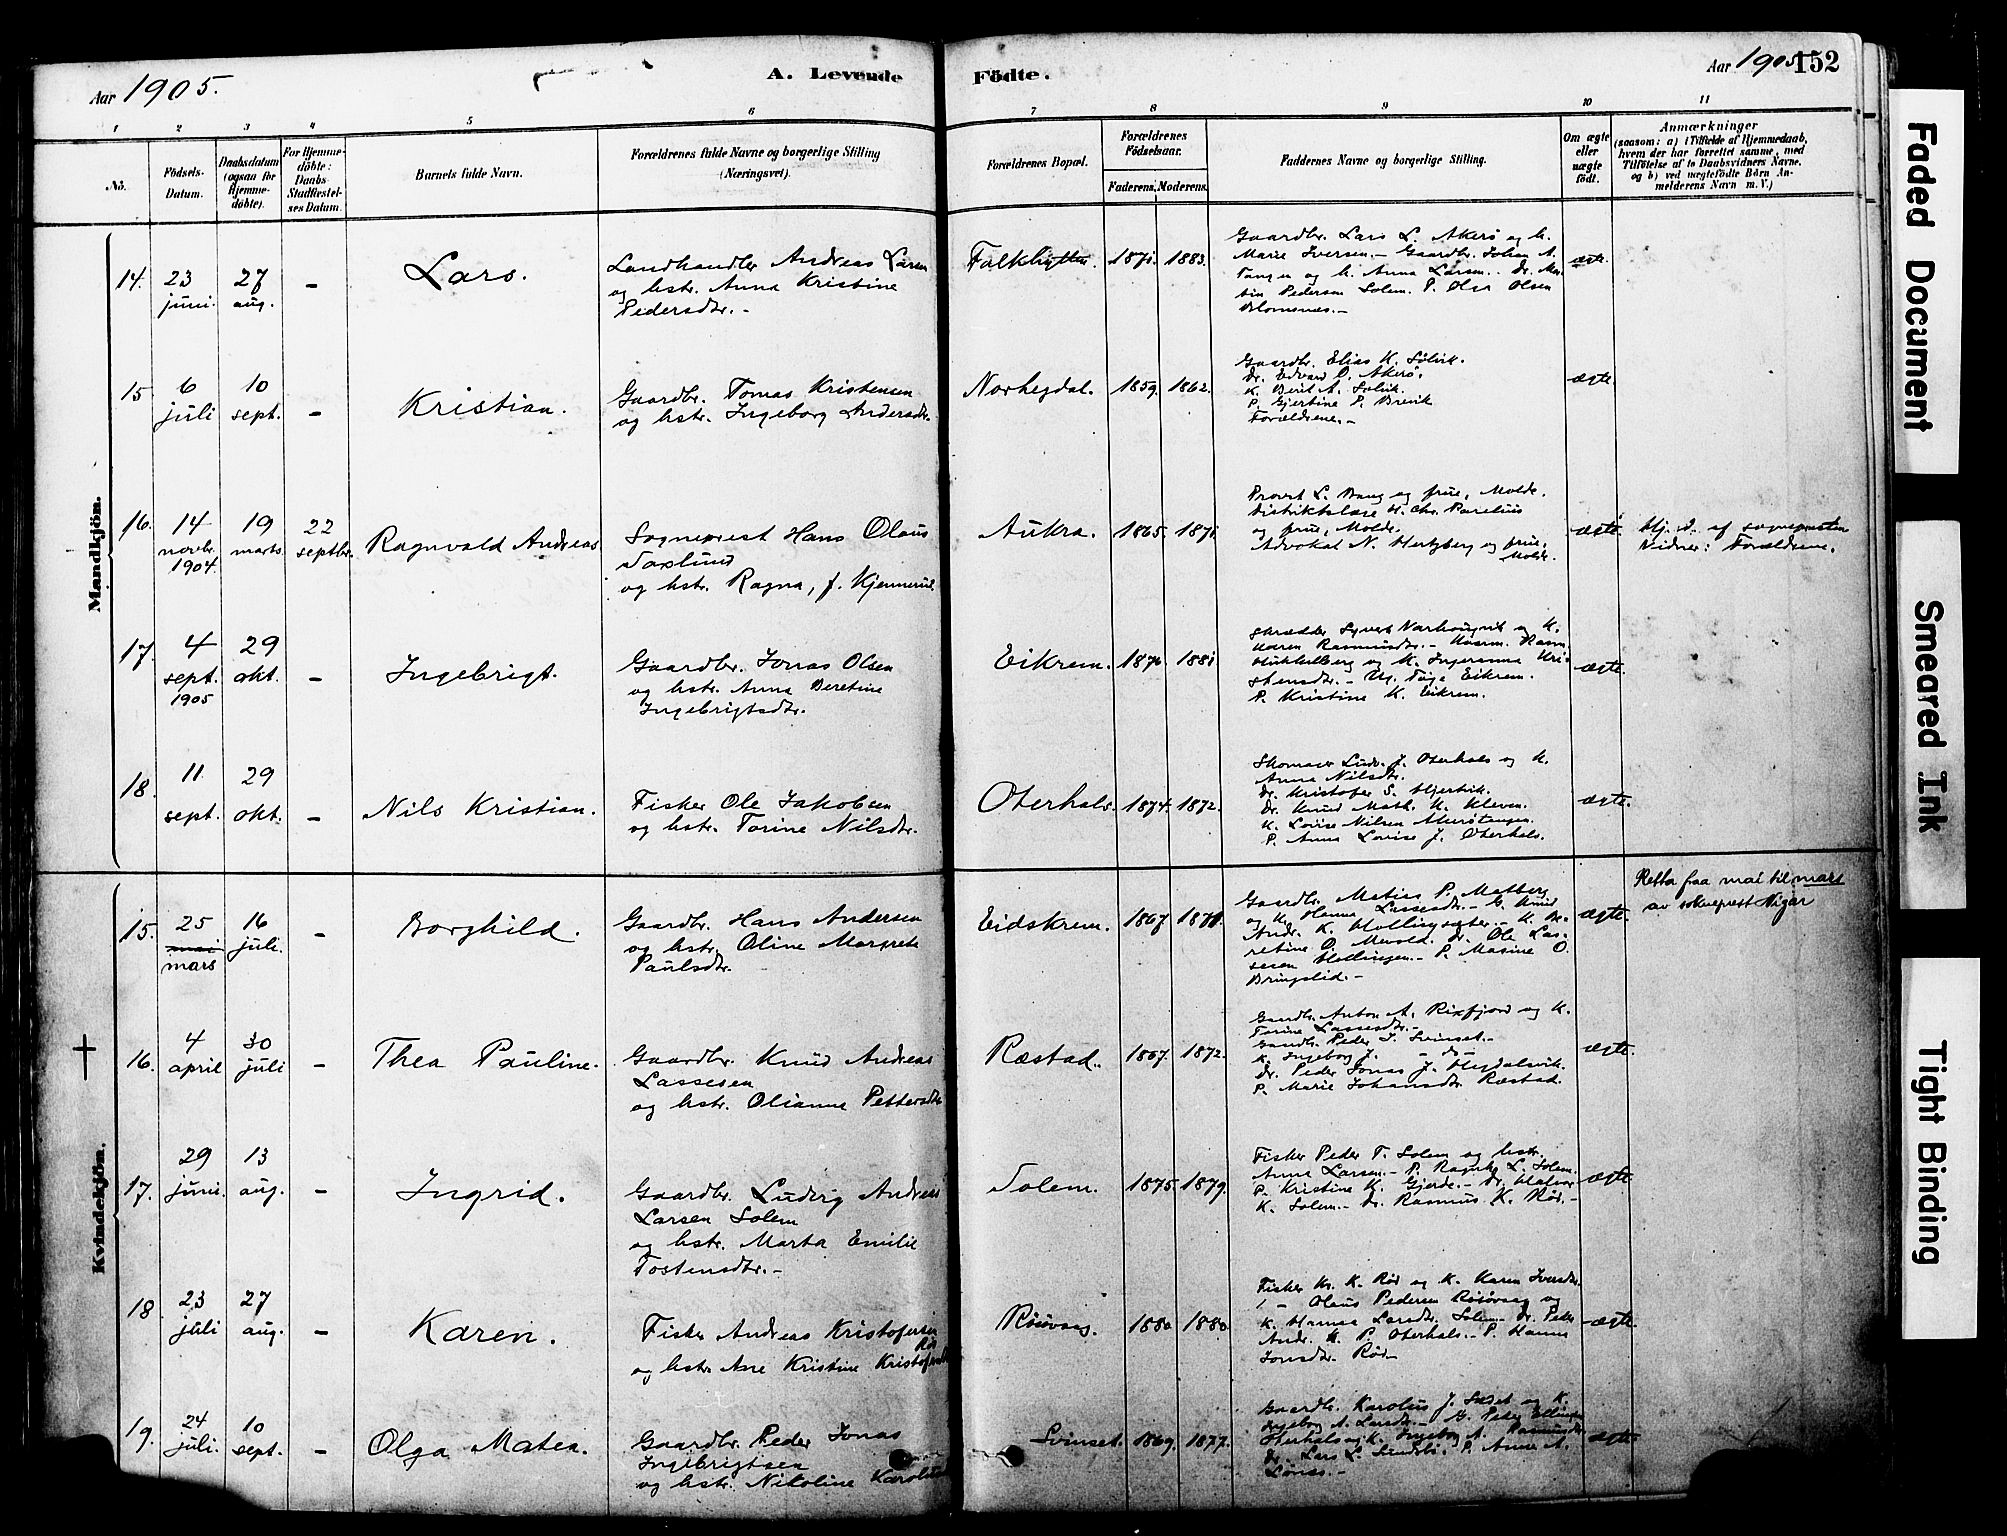 Aar 1905.
A. Levende
Födte.
Aar 1905.
152
1 2 3 4 5 6 7 8 9 10 11
No.
Födsels-Datum.
Daabsdatum (ogsaa for Hjemme-döbte).
For Hjemme-döbte: Daabs Stadfæstel-ses Datum.
Barnets fulde Navn.
Forældrenes fulde Navne og borgerlige Stilling
(Næringsvei).
Forældrenes Bopæl.
Forældrenes Födselsaar.
Faderens. Moderens.
Faddernes Navne og borgerlige Stilling.
Om ægte eller uægte födt.
Anmærkninger
(saasom: a) i Tilfælde af Hjemmedaab,
hvem der har forrettet samme, med
Tilföielse af to Daabsvidners Navne,
og b) ved uægtefödte Börn An-
melderens Navn m. V.)
Mandkjön.
14. 23 juni. 27 aug. - Lars.
Landhandler Andreas Larsen
og hstr. Anna Kristine
Pedersdtr. -
Falkhytten. 1871. 1883.
Gaardbr. Lars L. Akerø og h.
Marie Iversen. - Gaardbr. Johan A.
Tangen og h. Anna Larsen.
Pedersen Solem. P. Olsen
ægte.
15 6 juli 10 sept. - Kristian.
Gaardbr. Tomas Kristensen
og hstr. Ingeborg Andersdtr.
Norhegdal. 1859. 1862.
Gaardbr. Elias K. Sølvik.
Dr. Edvard O. Akerø.
K. Berit A. Solvik.
P. Gjertine P. Brevik
Forældrene. -
ægte.
16. 14 novbr. 1904. 19 marts 22 septbr. Ragnvald Andreas
Sogneprest Hans Olaus
Saxlund
og hstr. Ragna, f. Kjennerud.
Aukra. 1865. 1871.
Provst L. Bang og frue, Molde.
Distriktslæge H. Chr. Parelius
og frue, Molde.
Advokat N. Hertzberg og frue,
Molde.
ægte.
Hj. d. af sognepresten
Vidner: Forældrene.
17. 4 sept. 1905 29 okt. - Ingebrigt.
Gaardbr. Jonas Olsen
og hstr. Anna Beretine
Ingebrigtsdtr.
Eikrem. 1876. 1881.
Skrædder Syvert og K.
Karen Rasmusdtr. -
og K. Ingeranna Kri-
stensdtr. - Eikrem.
P. Kristine K. Eikrem.
ægte.
18. 11. sept. 29 okt. - Nils Kristian.
Fisker Ole Jakobsen
og hstr. Torine Nilsdtr.
Oterhals. 1874. 1872.
Skomager Ludv. J. Oterhals og K.
Anna Nilsdtr.
Dr. Kristofer S. Hjertvik.
Dr. Knud Math. K. Kleven.
K. Lovise Nilsen
P. Anna Lovise J. Oterhals.
ægte.
Kvindekjön.
15. 25 mai mars 16 juli. - Borghild.
Gaardbr. Hans Andersen
og hstr. Oline Margrete
Paulsdtr.
Eidskrem. 1867. 1871.
Gaardbr. Matias P. Malberg
og K. Hanna Lassesdtr. - G. Knud
Andr. K. Hollingsæter. - K. Be-
retine O. Dr. Ole Las-
sesen Hollingen. - P. Masine O.
Bringslid. -
ægte.
Retta fraa mai til mars
av sokneprest Vigar
16. 4 april 30 juli - Thea Pauline.
Gaardbr. Knud Andreas
Lassesen
og hstr. Olianna Pettersdtr
Ræstad. 1867. 1872.
Gaardbr. Anton A. Rixfjord og K.
Torine Lassesdtr. -
Gaardbr. Peder J. Svinset. -
K. Ingeborg J. - do -
Dr. Peder Jonas J. Hegdalsvik.
P. Marie Johansdtr. Ræstad.
ægte.
17. 29 juni. 13 aug. - Ingrid.
Gaardbr. Ludvig Andreas
Larsen Solem
og hstr. Marta Emilie
Tostensdtr. -
Solem. 1875. 1879.
Fisker Peder T. Solem og hstr.
Anna Larsen. - P. Ragnh. L. Solem.
P. Kristine K. Gjerde. - Dr. Olafvar
K. Solem. - Dr. Rasmus K. Rød. -
ægte.
18 23 juli 27 aug. - Karen.
Fisker Andreas Kristofersen
Rød
og hstr. Ane Kristine Kristofersdtr
Røsovaag. 1880. 1880.
Fisker Kr. K. Rød og K. Karen Iversdtr.
Olaus Pedersen Røsovaag og
K. Hanna Larsdtr. Solem. Dr. Peder
Andr. K. P. Oterhals. - P. Hanna
Jonsdtr. Rød -
ægte.
19. 24 juli. 10 sept. - Olga Matea.
Gaardbr. Peder Jonas
Ingebrigtsen
og hstr. Nikoline Karolus
Svinset. 1869. 1877.
Gaardbr. Karolus J. Sæset og K.
Ingeborg A. Larsdtr. - G. Peder Ellingsen
Oterhals og K. Ingeborg A. Rasmusdtr.
Dr. Lars L. Sundsbø. P. Anne A.
Lønes. -
ægte
Faded Document
Smeared Ink
Tight Binding